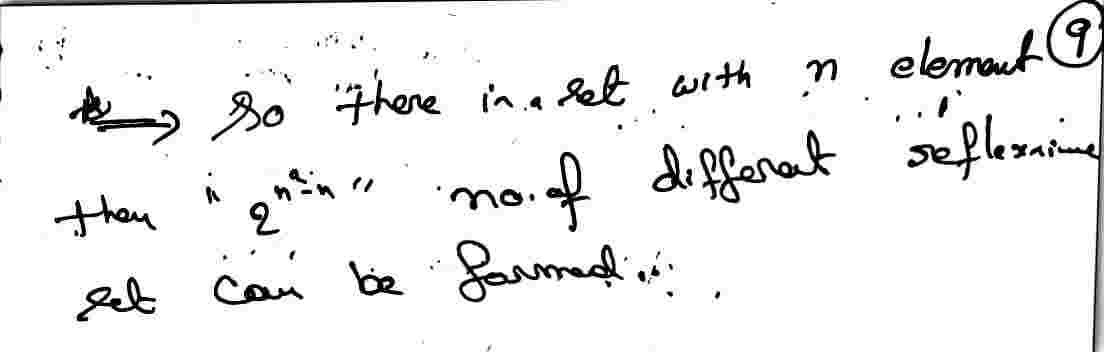 → So there in a set with n element 9
then "2^{n²-n}" no. of different reflexive
set can be formed.